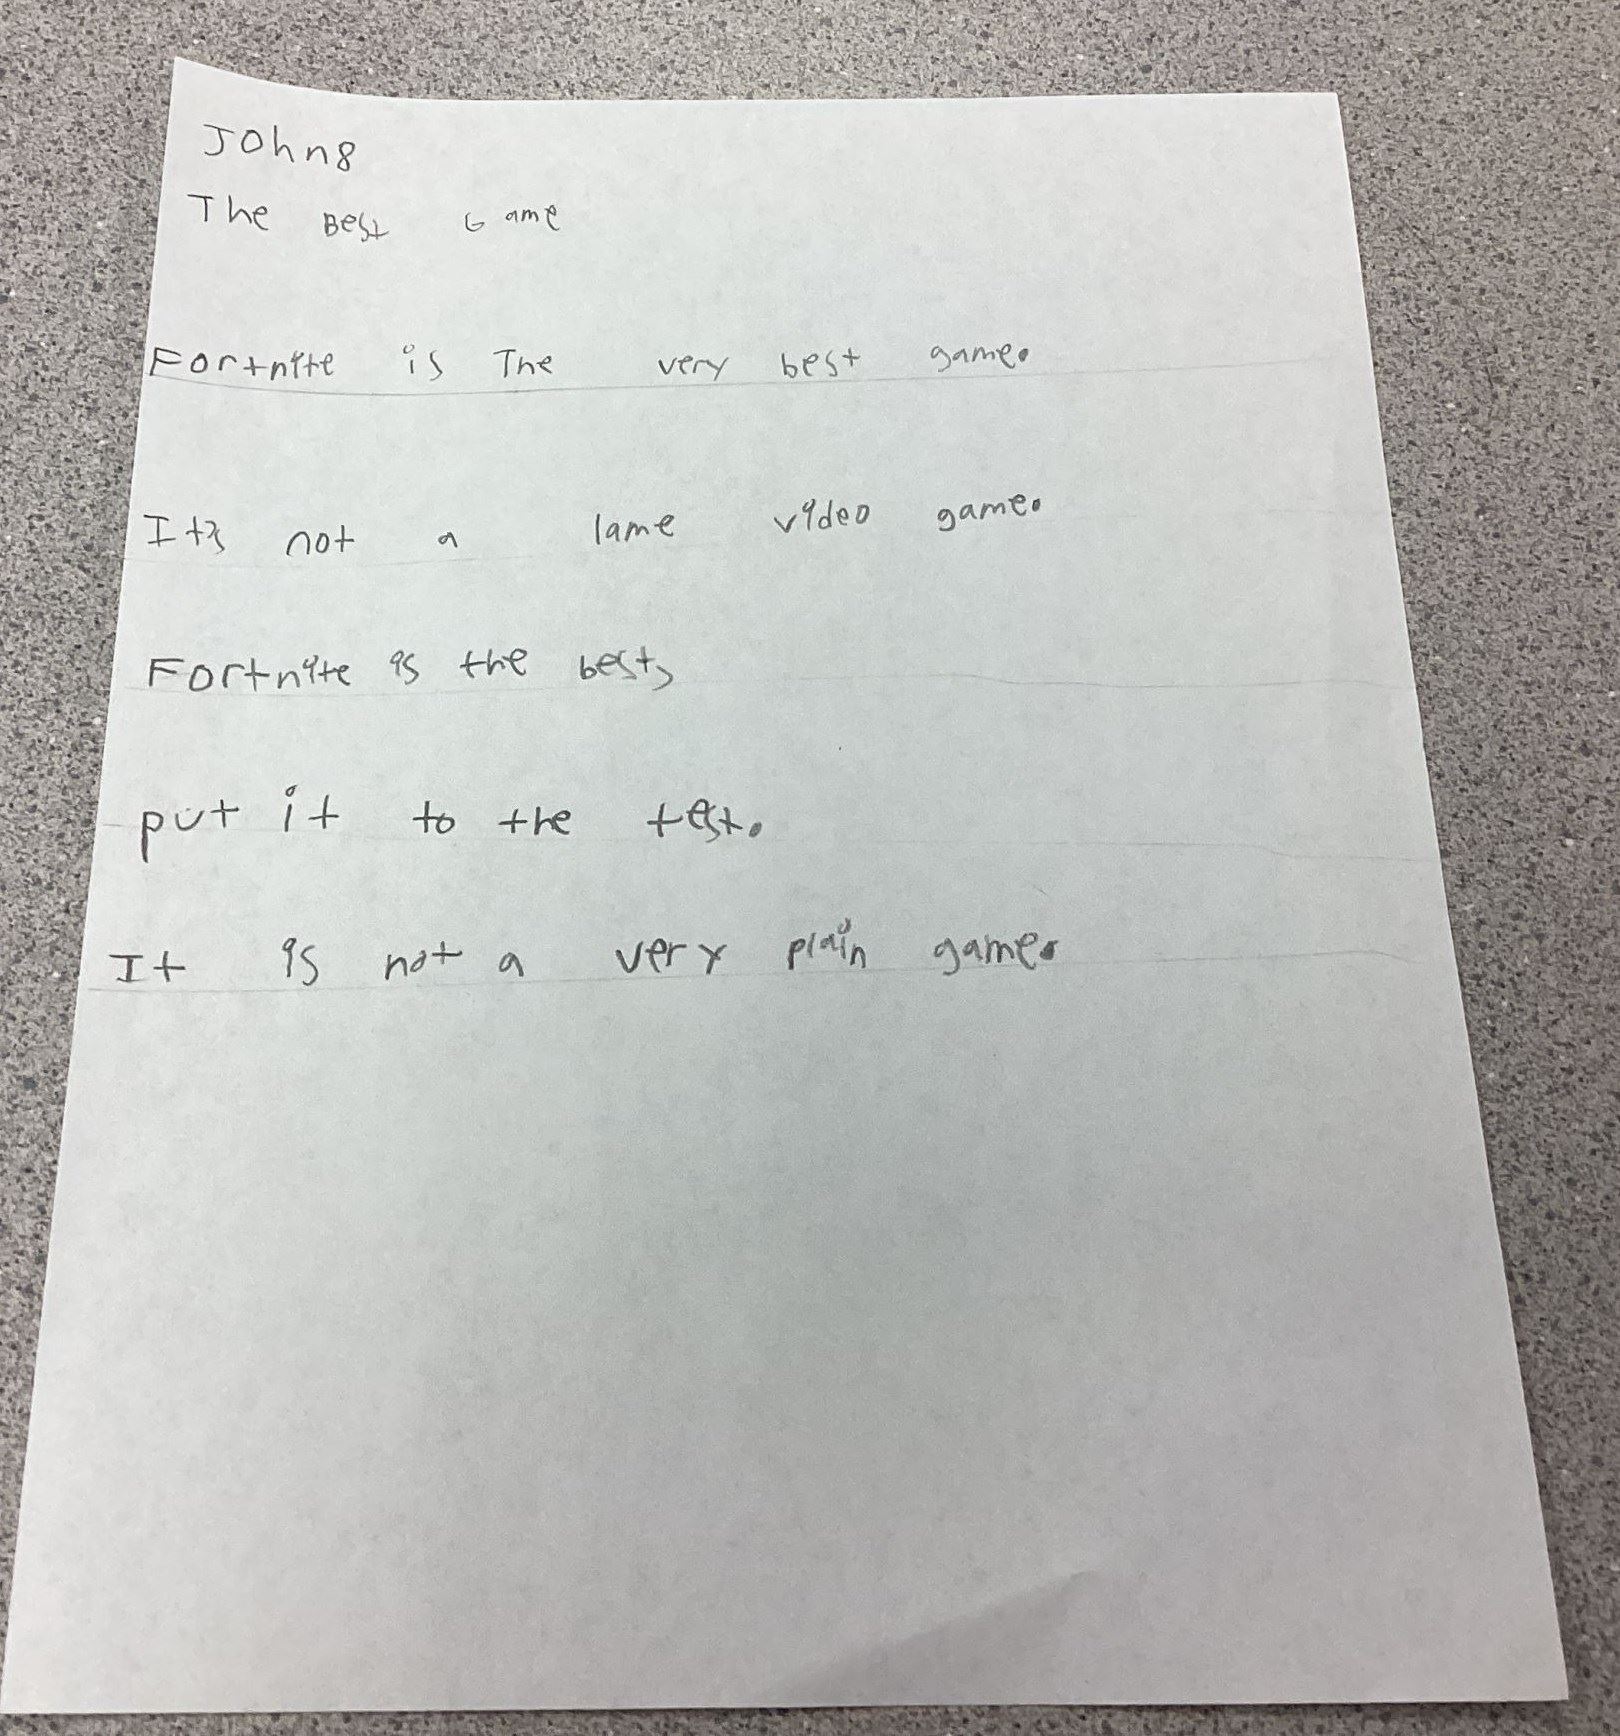 JOhn8
The Best Game
Fortnite is The very best game.
Its not a lame video game.
Fortnite is the best,
put it to the test.
It is not a very plain game.